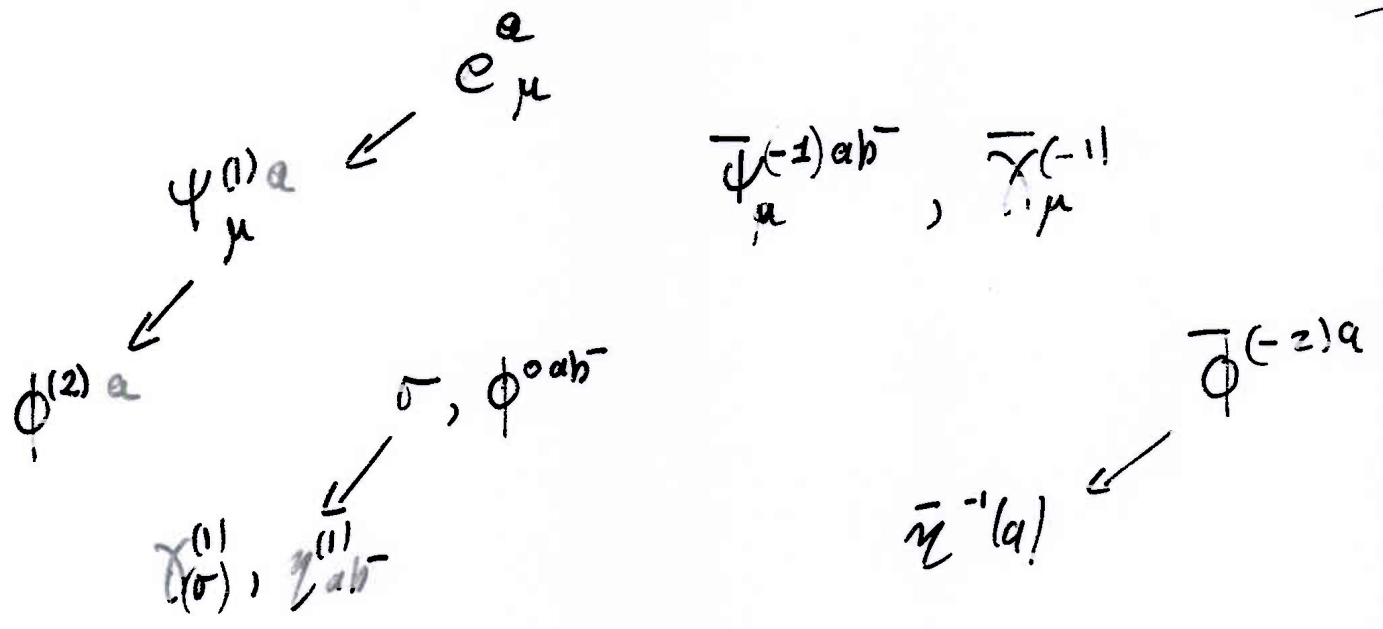 e^a_μ
ψ^{(1)a}_μ
ψ̄^{(-1)ab^-}_μ , χ̄^{(-1)}_μ
ϕ^{(2)a}
σ, ϕ^{0ab^-}
ϕ̄^{(-2)a}
χ^{(1)}_{(σ)}, η^{(1)}_{ab^-}
η̄^{-1(a)}